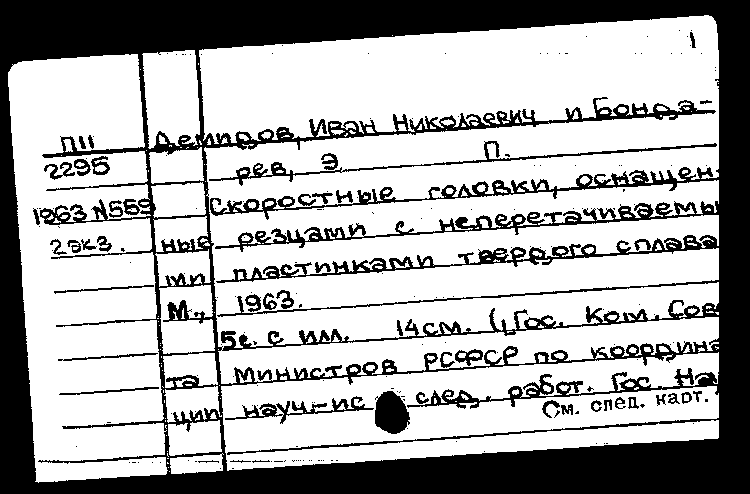 1
П11 Демидов, Иван Николаевич и Бонда-
2295 рев, Э. П.
1963 N559 Скоростные головки, оснащен-
2 экз. ные резцами с неперетачиваемы
ми пластинками твердого сплава
М., 1963.
5с. с илл. 14 см. (Гос. Ком. Сове
та Министров РСФСР по координа
ции науч.-ис след. работ. Гос. На
См. след. карт.